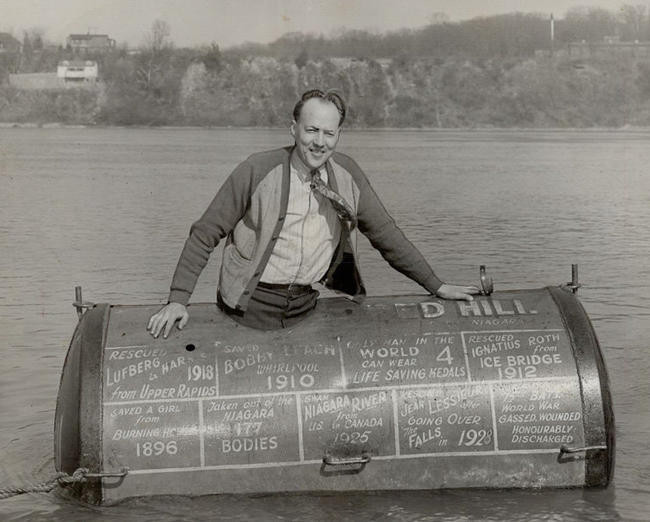 D HILL
NIAGARA
RESCUED
LUFBERG &
from UPPER RAPIDS
1918
SAVED
BOBBY LEACH
WHIRLPOOL
1910
ONLY MAN IN THE
WORLD 4
CAN WEAR
LIFE SAVING MEDALS
RESCUED
IGNATIUS ROTH
from
ICE BRIDGE
1912
SAVED A GIRL
from
BURNING
1896
TAKEN OUT OF THE
NIAGARA
177
BODIES
SWAM
NIAGARA RIVER
from
U.S. to CANADA
1925
JEAN
GOING OVER
THE FALLS in 1928
WORLD WAR
GASSED, WOUNDED
HONOURABLY
DISCHARGED